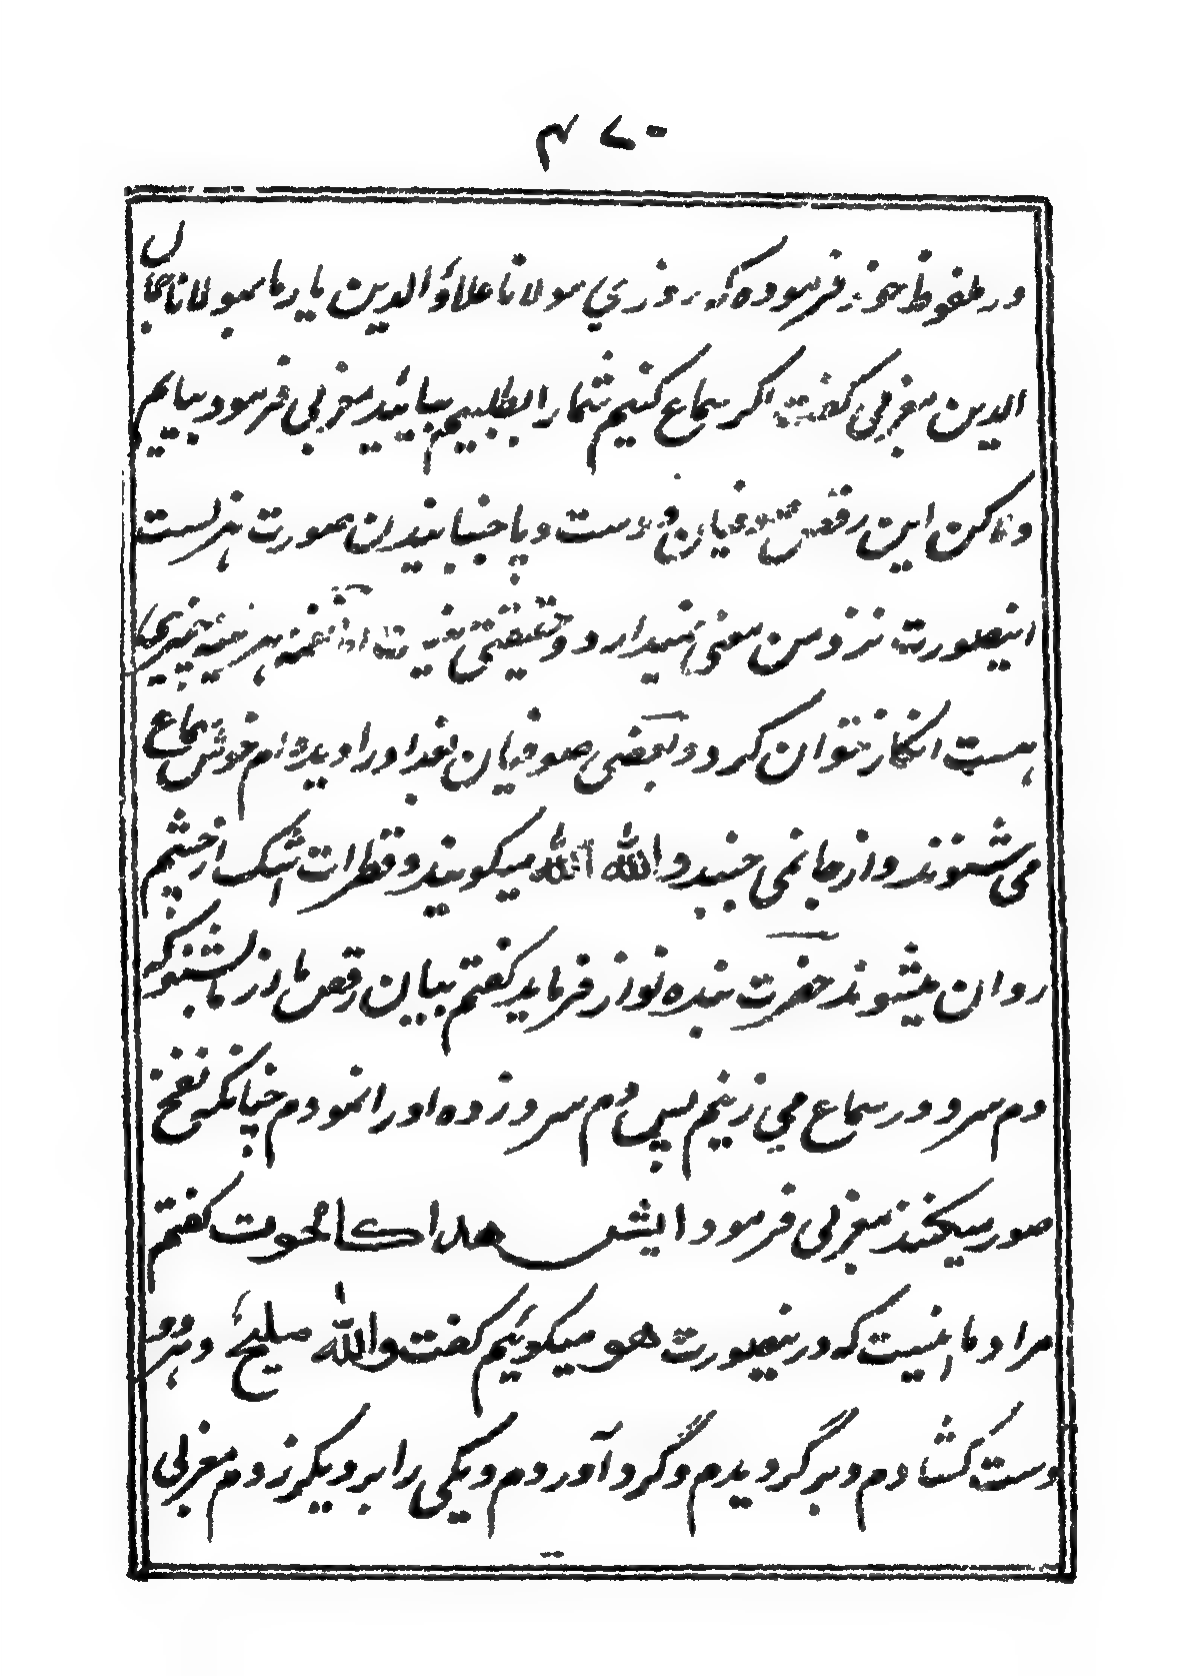 در ملفوظ خود فرموده که روزي مولانا علاؤالدین یا رها بمولانا جمال
الدین مغربی گفت اگر سماع کنیم شما را بطلبیم بیائید مغربی فرمود بیایم
ولکن این رقص صوفیان دست و پا جنبانیدن بصورت هزلست
اینصورت نزد من معنی نمیدارد و حقیقتی نیست هر چه چیزی که
هست انکار نتوان کرد و بعضی صوفیان بغداد را دیده ام خوش سماع
می شنوند و از جا نمی جنبند و الله الله میگویند و قطرات اشک از چشم
روان میشوند حضرت بنده نواز فرماید گفتم بیان رقص ما از ما بشنو که
دم سرو در سماع می زنیم پس دم سرو زده او را نمودم چنانکه نفخ
صور میکنند مغربی فرمود ایش هذا کالحوت گفتم
مراد ما اینست که درینصورت هو میگوئیم گفت والله ملیح و هر دو
دست کشادم و بر گردیدم و گرد آوردم و یکی را بر دیگر زدم مغربی